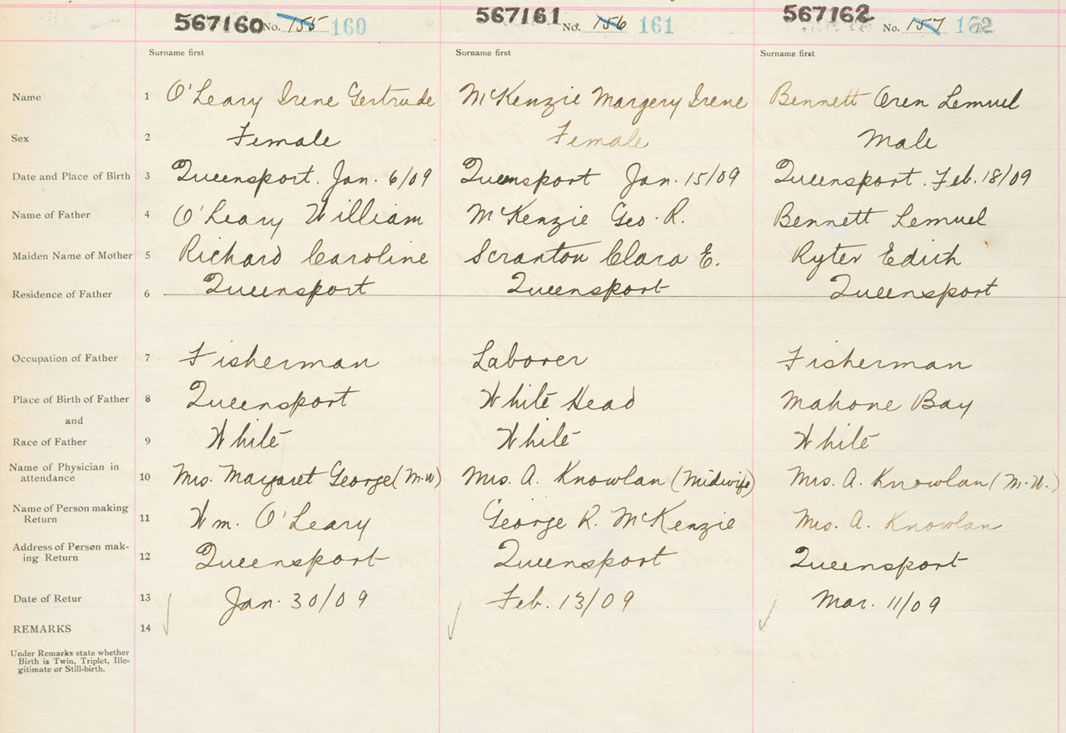 567160 No. 155 160 567161 No. 156 161 567162 No. 157 162
Surname first Surname first Surname first
Name 1 O'Leary Irene Gertrude McKenzie Margery Irene Bennett Oren Lemuel
Sex 2 Female Female Male
Date and Place of Birth 3 Queensport. Jan. 6/09 Queensport Jan. 15/09 Queensport. Feb. 18/09
Name of Father 4 O'Leary William McKenzie Geo. R. Bennett Lemuel
Maiden Name of Mother 5 Richard Caroline Scranton Clara E. Ryter Edith
Residence of Father 6 Queensport Queensport Queensport
Occupation of Father 7 Fisherman Laborer Fisherman
Place of Birth of Father 8 Queensport White Head Mahone Bay
and
Race of Father 9 White White White
Name of Physician in
attendance 10 Mrs. Margaret George (M.W) Mrs. A. Knowlan (Midwife) Mrs. A. Knowlan (M.W.)
Name of Person making
Return 11 Wm. O'Leary George R. McKenzie Mrs. A. Knowlan
Address of Person mak-
ing Return 12 Queensport Queensport Queensport
Date of Retur 13 Jan. 30/09 Feb. 13/09 Mar. 11/09
REMARKS 14
Under Remarks state whether
Birth is Twin, Triplet, Ille-
gitimate or Still-birth.